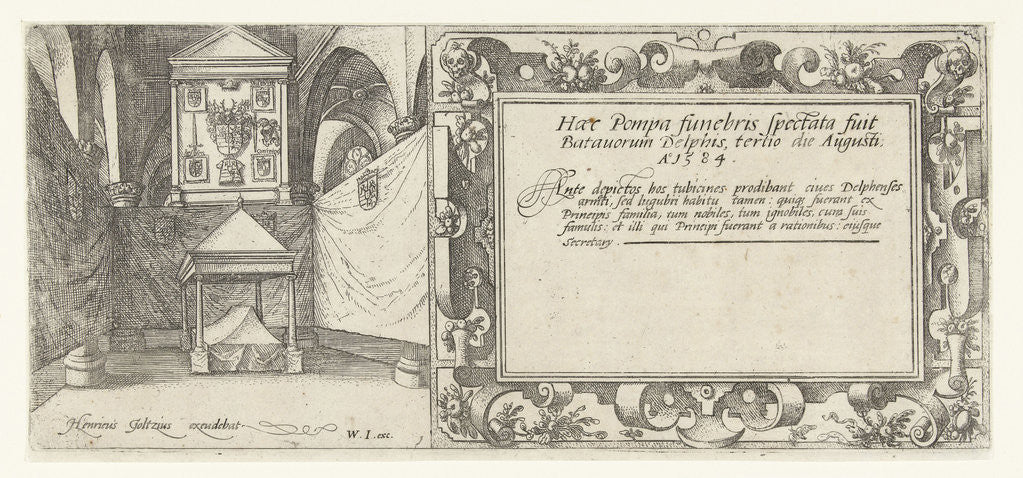 Hæc Pompa funebris spectata fuit
Batauorum Delphis, tertio die Augusti,
Aº 1584.
Ante depictos hos tubicines prodibant ciues Delphenses
armati, sed lugubri habitu tamen: quiqȝ fuerant ex
Principis familia, tum nobiles, tum ignobiles, cum suis
famulis: et illi qui Principi fuerant a rationibus: eiusque
Secretarÿ.
Henricus Goltzius excudebat.
W. I. exc.
1